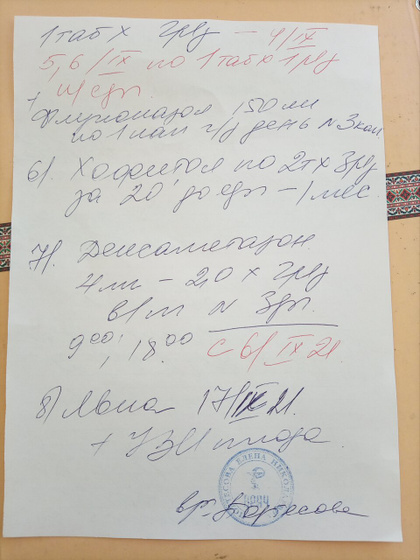 1 таб х 2р/д – 4/IX
5,6/IX по 1 таб х 1 р/д
п/еды
+
Флуконазол 150 мг
по 1 кап ч/з день N 3 кап
6). Хофитол по 2т х 3р/д
за 20' до еды – 1 мес.
7). Дексаметазон
4 мг – 2,0 х 2р/д
в/м N 3 дн.
9⁰⁰, 18.⁰⁰ с 6/IX 21.
8) Явка 17/IX 21.
+ УЗИ плода
ЕЛЕНА
вр.